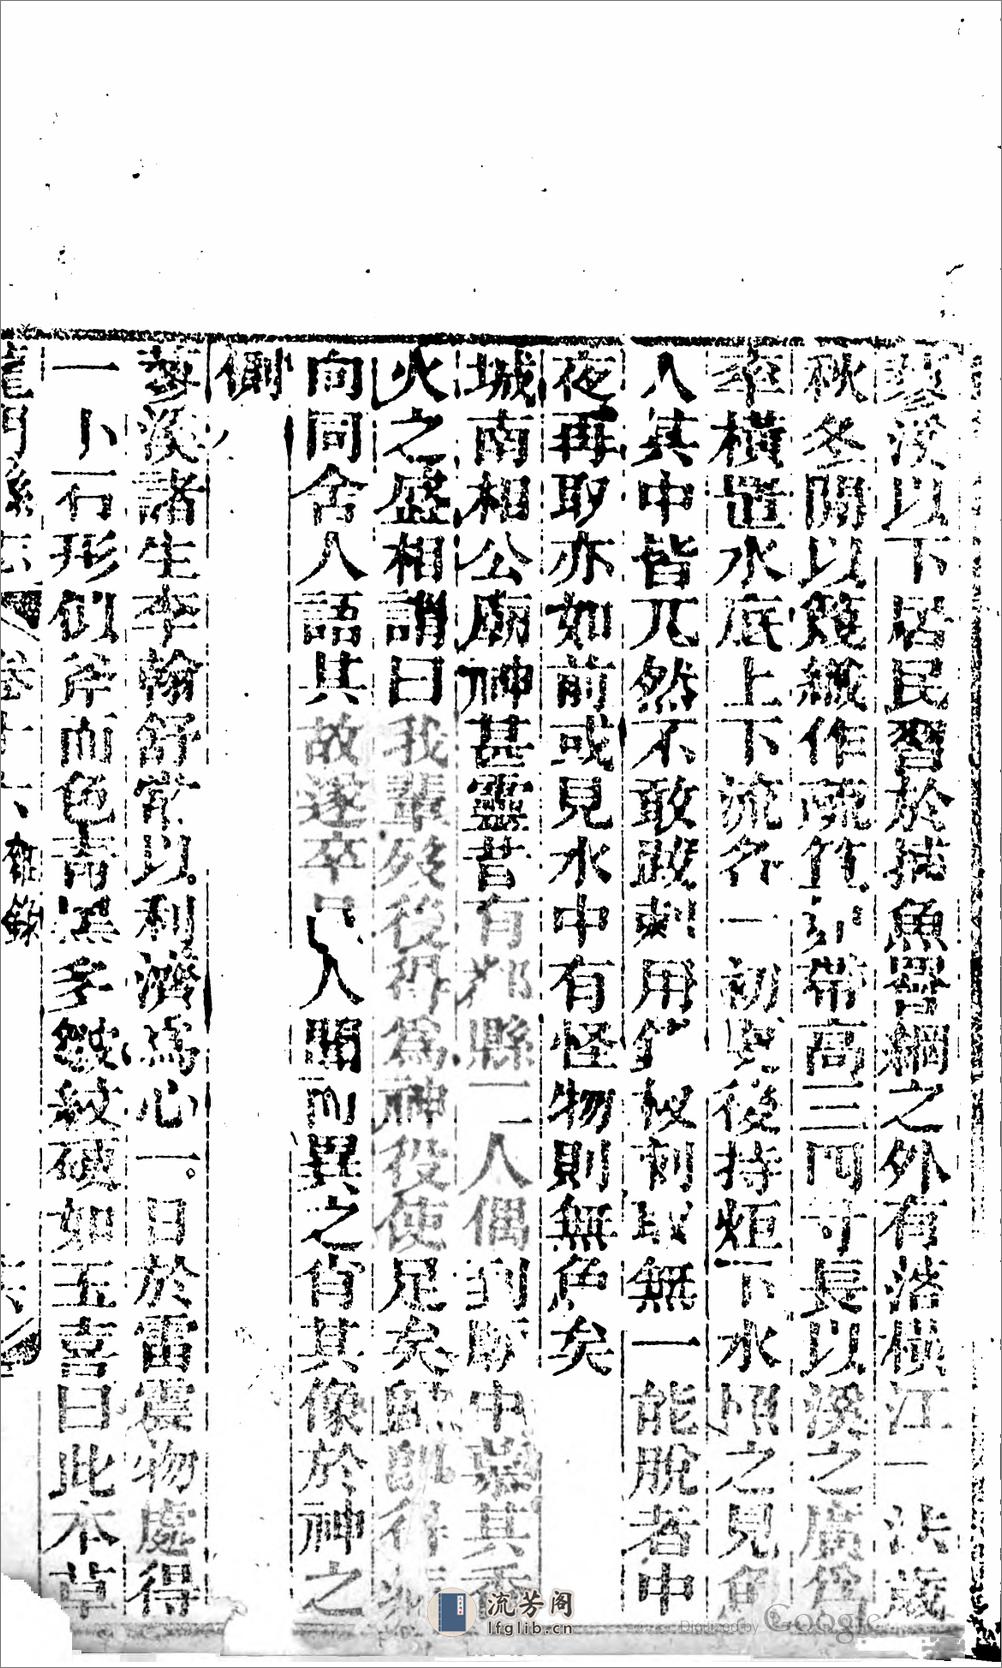 溪以下居民習於捕魚罾網之外有法歲
秋冬間以篾緻作疏帶高三四寸長以溪之廣爲
率橫置水底上下流各一初更後持炬下水照之見魚
入其中皆兀然不敢用扠刺取無一能脫者中
夜再取亦如前或見水中有怪物則無魚矣
城南相公廟神甚靈昔有鄰縣二人偶到廟中慕其香
火之盛相謂曰我輩歿後得爲神役使足矣得
向同舍人語其故遂卒人聞而異之肖其像於神之
側
溪諸生李翰舒常以利濟爲心一日於雷震物處得
一卜石形似斧而色青黑多皴紋硬如玉喜曰此本草
龍門縣志 卷十六 雜錄
流芳阁
lfglib.cn
Digitized by Google